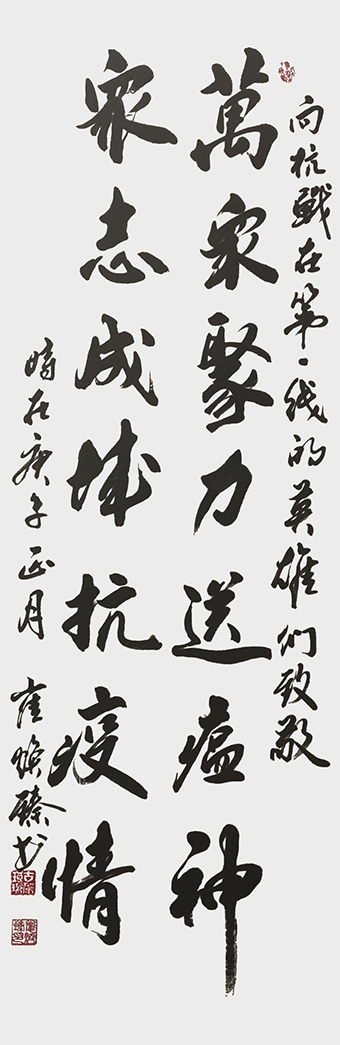 向抗戰在第一线的英雄们致敬
萬家聚力送瘟神
眾志成城抗疫情
時在庚子正月 崔焕臻书